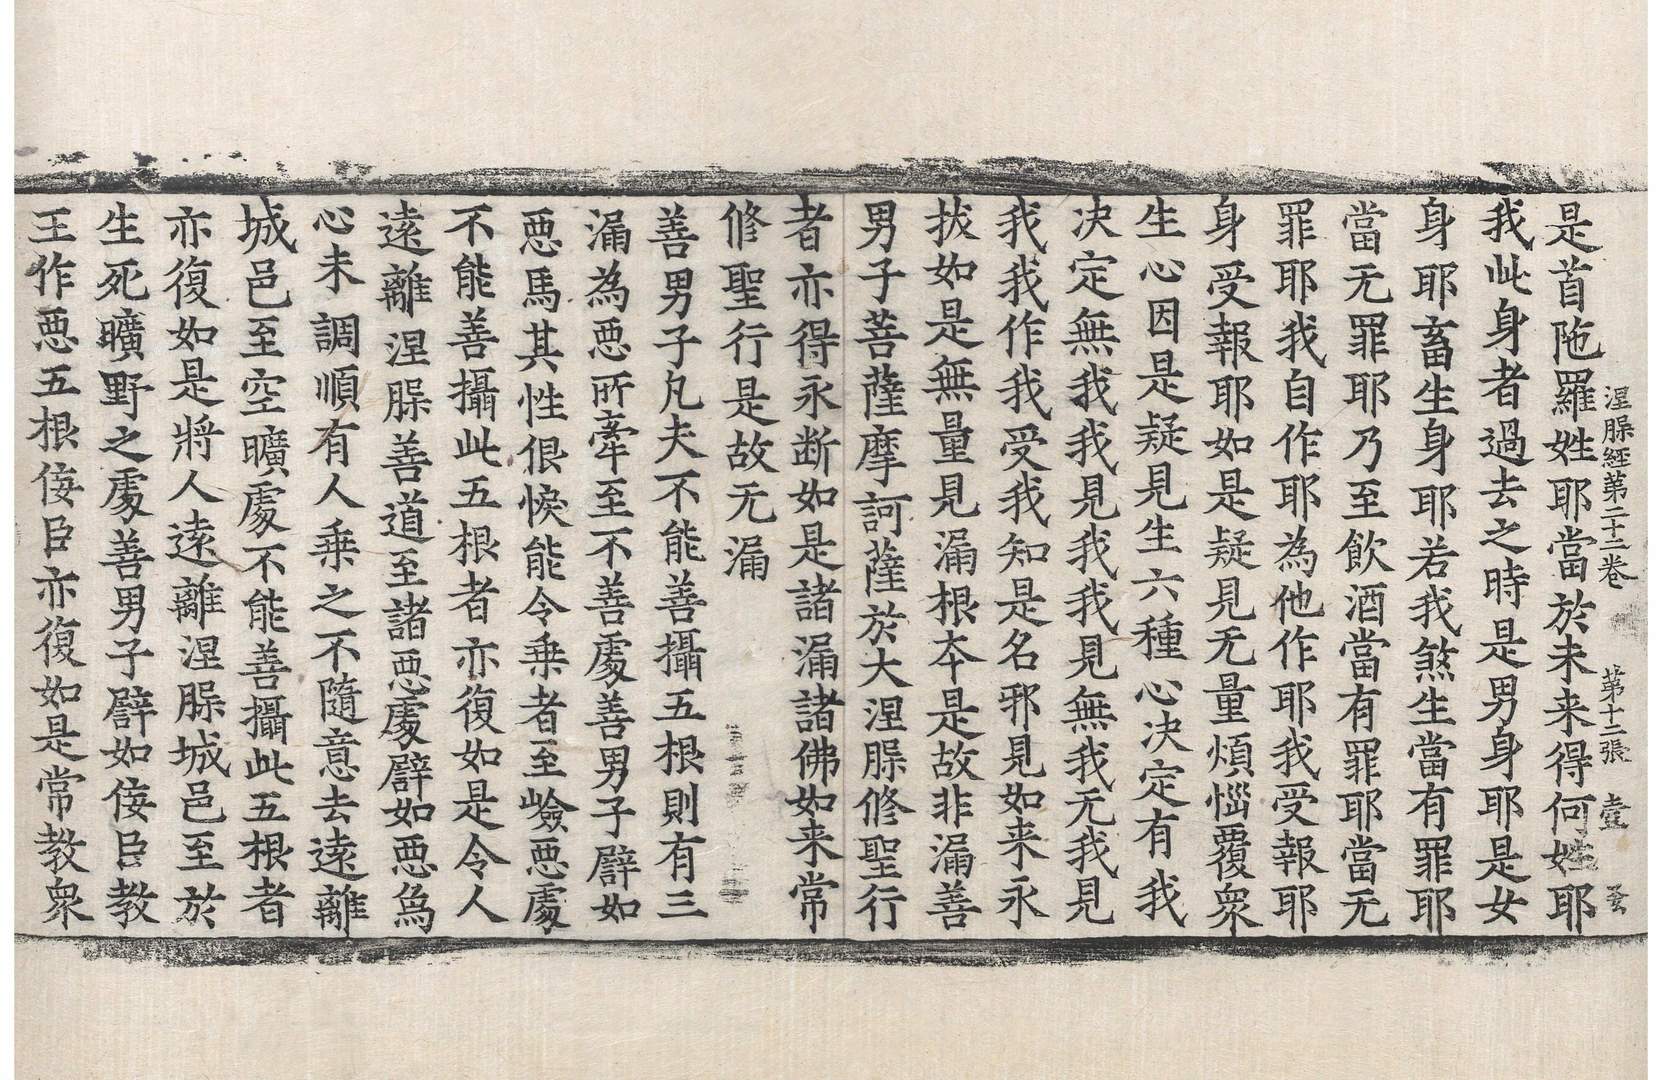 涅槃經第二十二卷 第十二張 壹
是首陁羅姓耶當於未来得何姓耶
我此身者過去之時是男身耶是女
身耶畜生身耶若我煞生當有罪耶
當无罪耶乃至飲酒當有罪耶當无
罪耶我自作耶為他作耶我受報耶
身受報耶如是疑見无量煩惱覆衆
生心因是疑見生六種心决定有我
决定無我我見我我見無我无我見
我我作我我受我知是名邪見如来永
拔如是無量見漏根夲是故非漏善
男子菩薩摩訶薩於大涅槃修聖行
者亦得永断如是諸漏諸佛如来常
修聖行是故无漏
善男子凡夫不能善攝五根則有三
漏為惡所牽至不善處善男子譬如
惡馬其性佷悷能令乗者至嶮惡處
不能善攝此五根者亦復如是令人
遠離涅槃善道至諸惡處譬如惡爲
心未調順有人乗之不隨意去遠離
城邑至空曠處不能善攝此五根者
亦復如是將人遠離涅槃城邑至於
生死曠野之處善男子譬如佞臣教
王作惡五根佞臣亦復如是常教衆